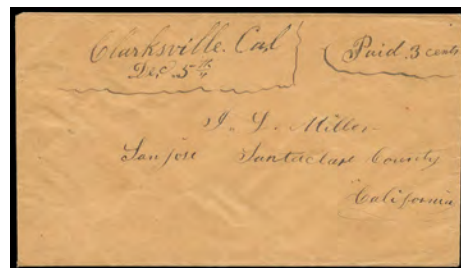 Clarksville. Cal
Dec. 5th
Paid. 3 cents
J. L. Miller
San jose Santaclare County
California